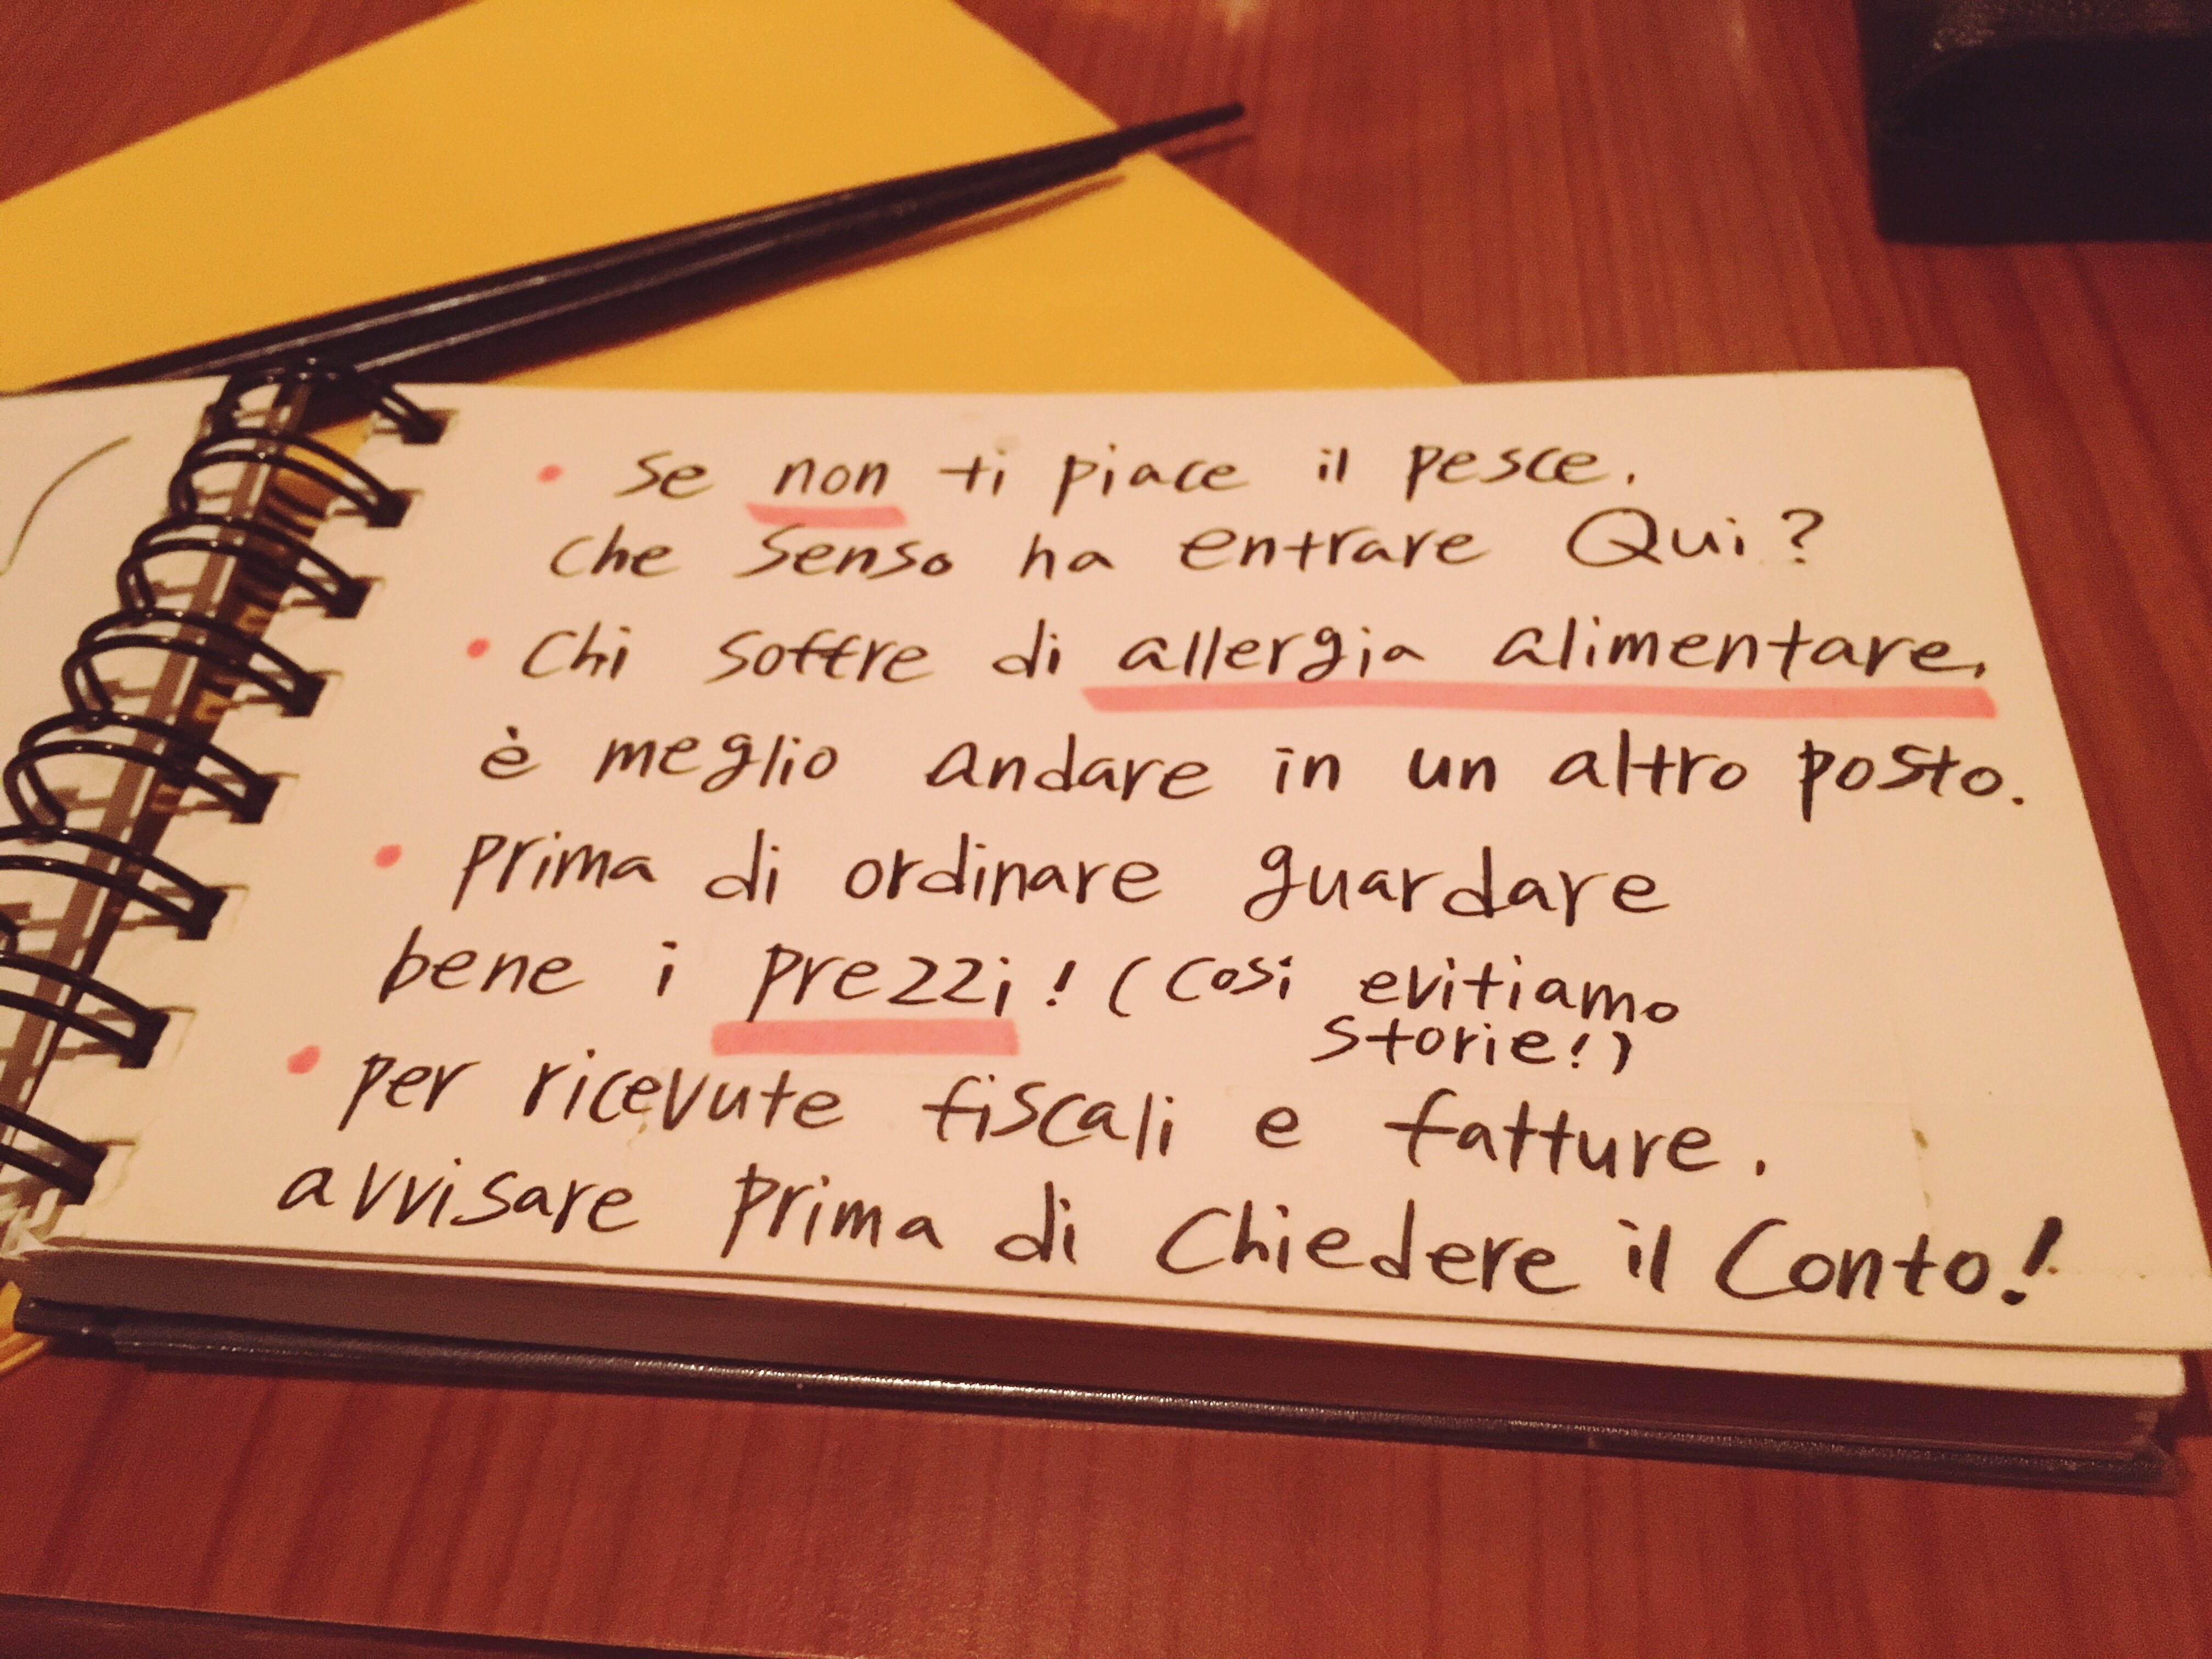 • Se non ti piace il pesce.
che senso ha entrare Qui?
• Chi soffre di allergia alimentare,
è meglio andare in un altro posto.
• prima di ordinare guardare
bene i prezzi! (così evitiamo
storie!)
• per ricevute fiscali e fatture.
avvisare prima di Chiedere il Conto!